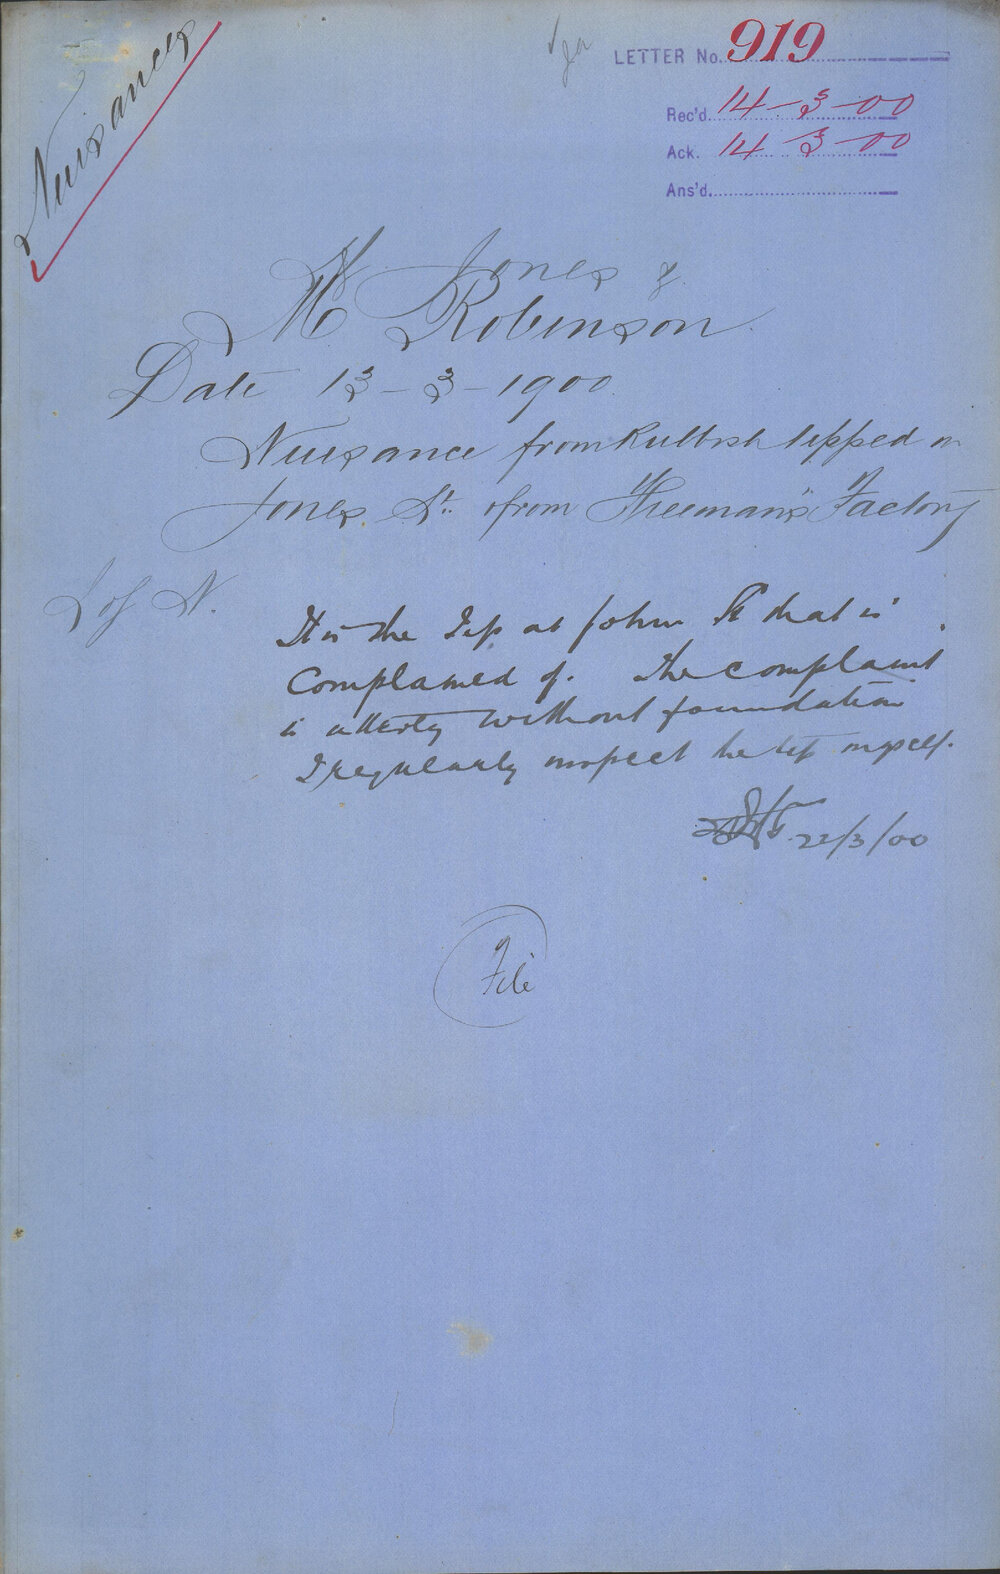 Nuisances
LETTER No. 919
Rec'd. 14-3-00
Ack. 14 3-00
Ans'd.
W Jones &
M Robinson
Date 13-3-1900
Nuisance from Rubbish tipped on
Jones St. from Freeman's Factory
I of N.
It is the Tip at John St that is
Complained of. The complaint
is utterly without foundation
I regularly inspect the tip myself.
22/3/00
File